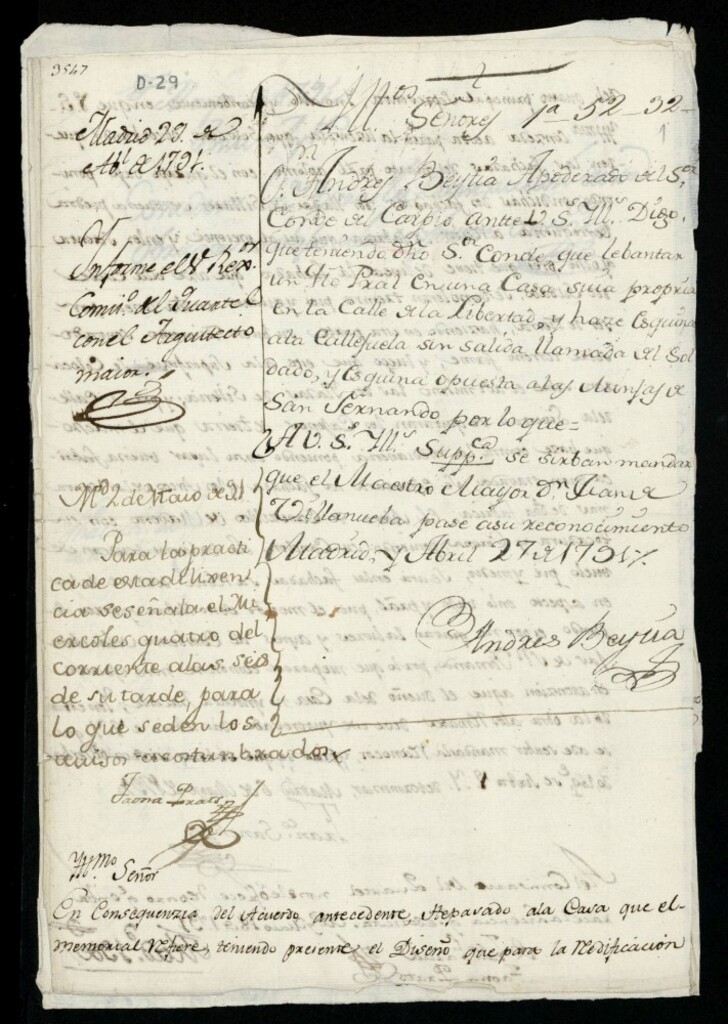 3547
D-29
Madrid 29. de
Ab.l de 1791.
Informe el S.r Rex.or
Comis.o del Quartel
con el Arquitecto
maior.
M.d 2 de Maio de 91
Para la practi
ca de esta dilixen
cia se señala el Mi
ercoles quatro del
corriente a las seis
de su tarde, para
lo que se den los
avisos acostumbrados
Ill.mos Señores 1a 52-32-
1
D.n Andres Beytia Apoderado del S.or
Conde del Carpio, antte V.S. Ill.s Digo,
que teniendo dho S.or Conde, que lebantar
un q.to Pral en una Casa suia propria
en la Calle de la Libertad, y haze esquina
a la Callejuela sin salida, llamada del Sol
dado, y esquina opuesta a las Monjas de
San Fernando por lo que=
A V.S. Ill.s Supp.ca se sirban mandar
que el Maestro Mayor D.n Juan de
Villanueba pase a su reconocimiento
Madrid, y Abril 27 de 1791
Andres Beytia
Ill.mo Señor
En Consequenzia del Acuerdo antecedente, he pasado a la Casa que el
memorial refiere, teniendo presente, el Diseño que para la redificación